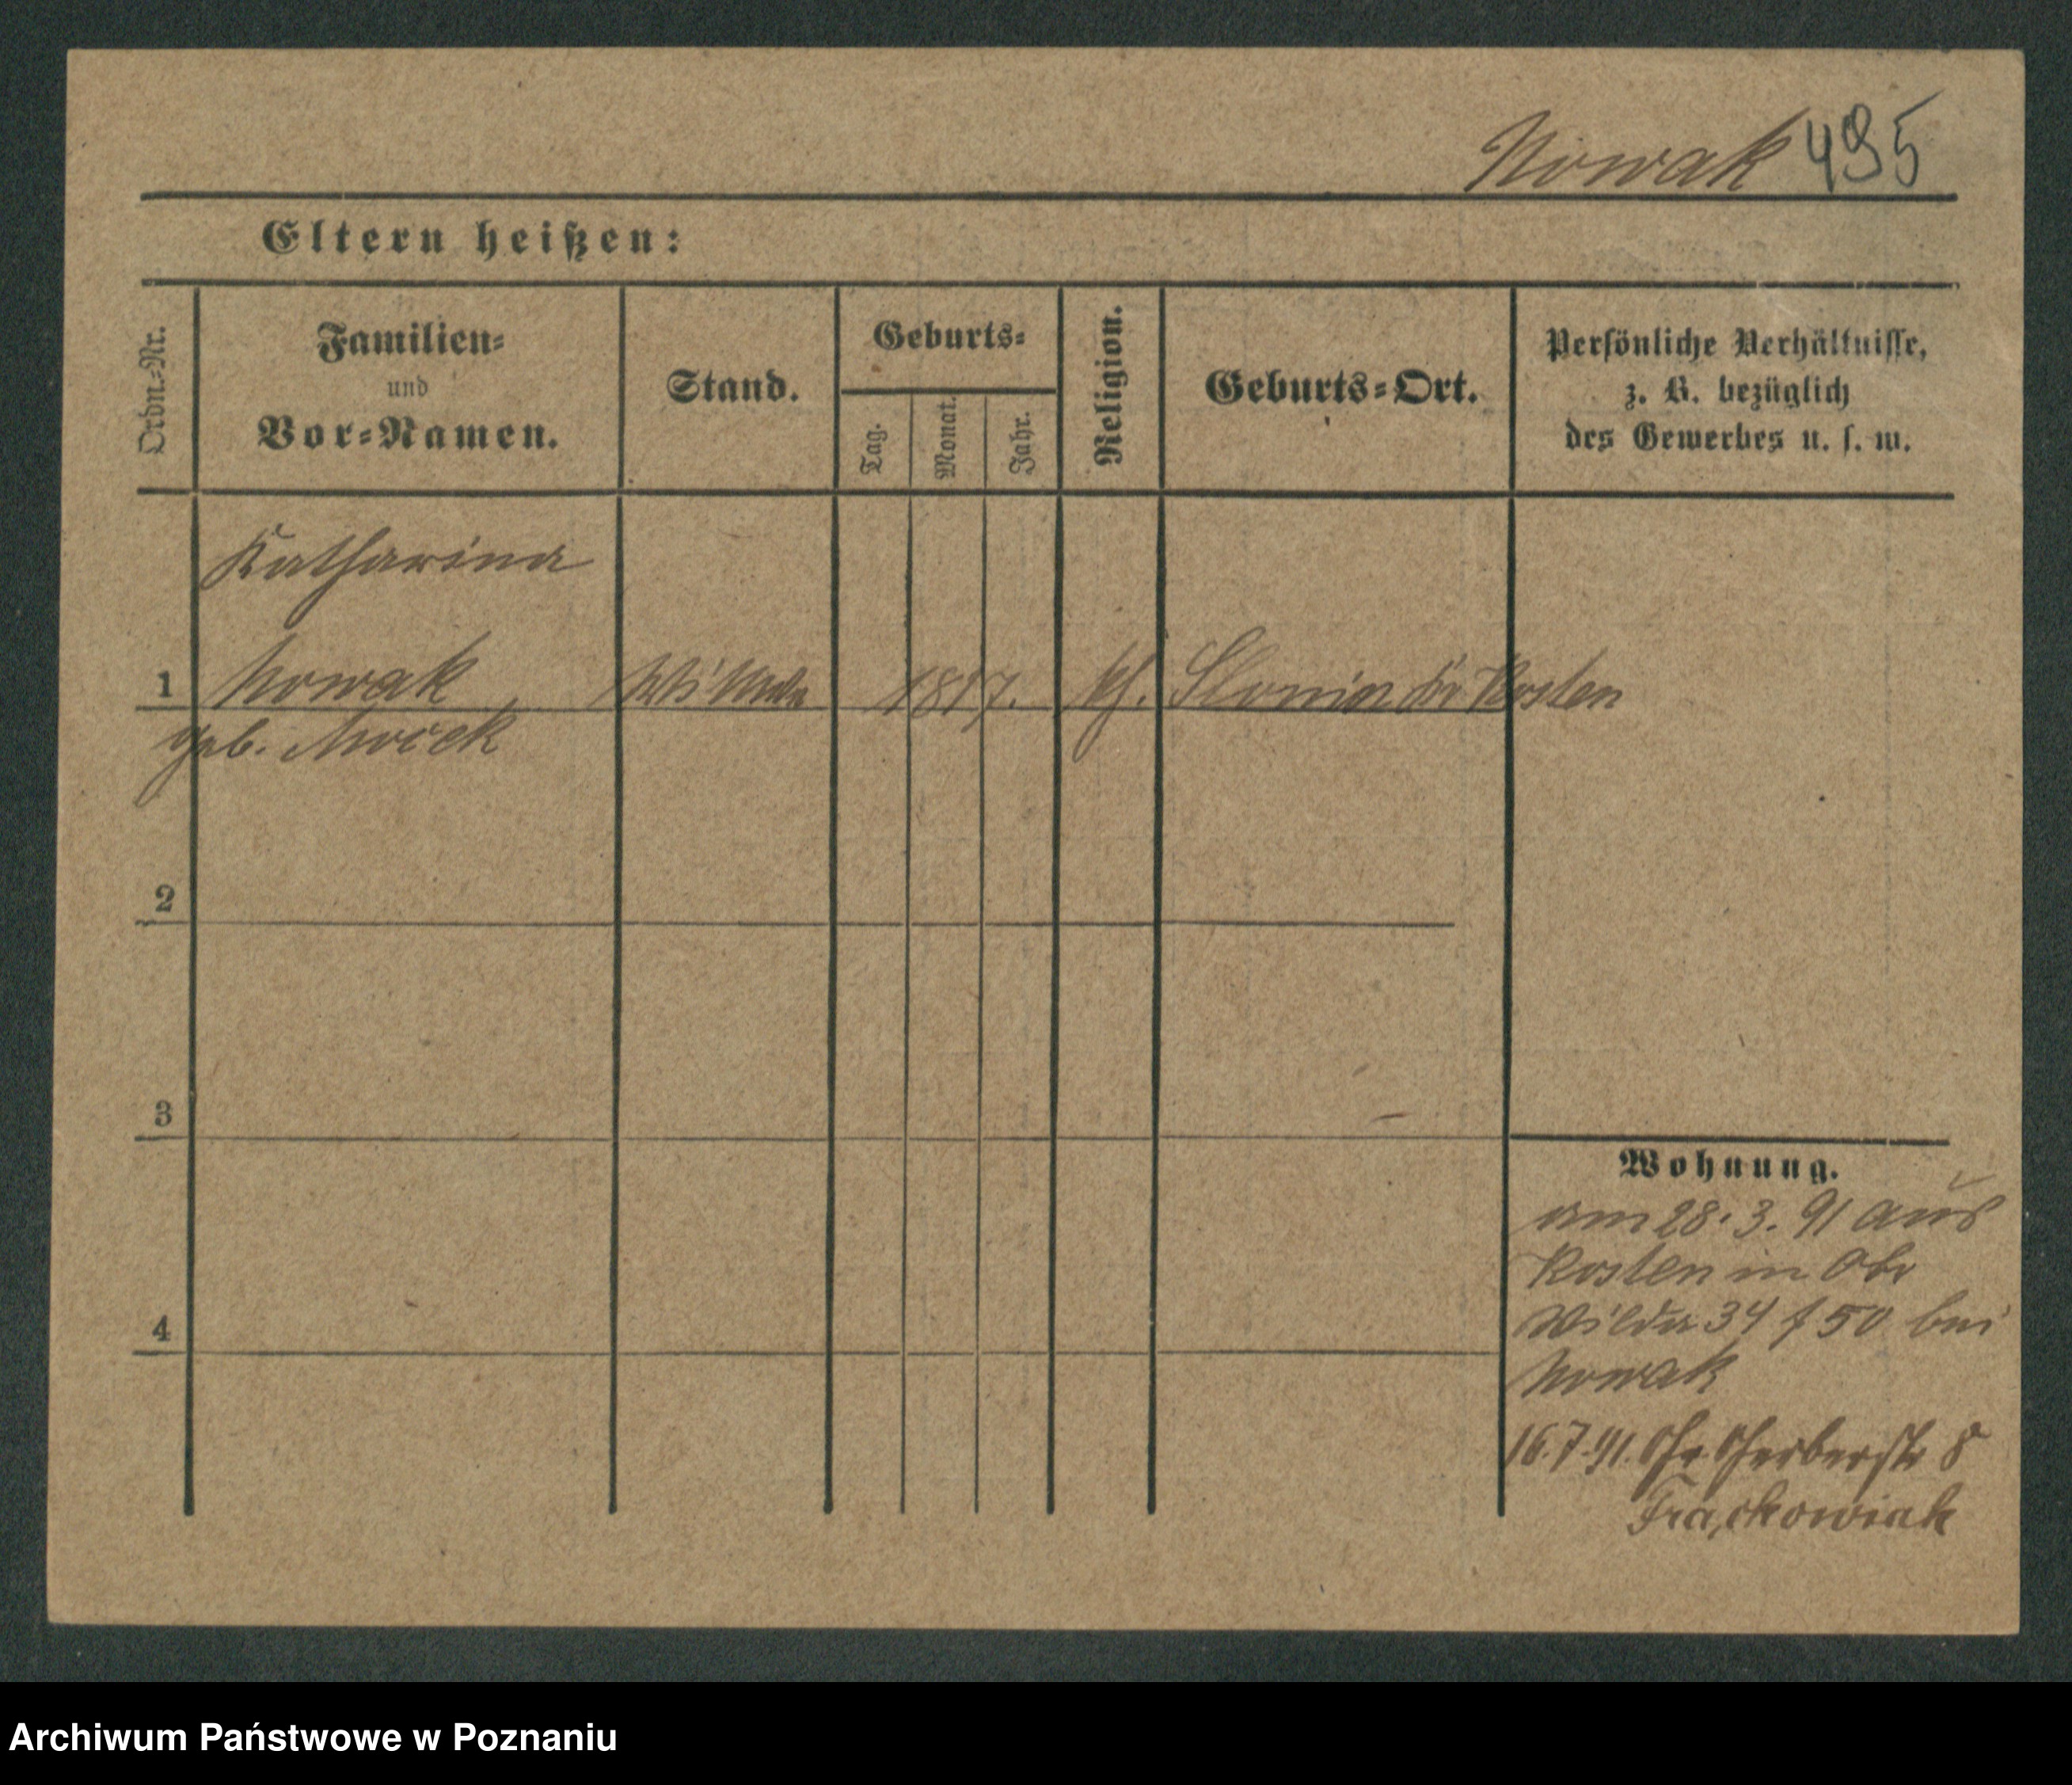 Nowak 495
Eltern heißen:
Ordn.-Nr.
Familien-
und
Vor-Namen.
Stand.
Geburts-
Tag.
Monat.
Jahr.
Religion.
Geburts-Ort.
Persönliche Verhältnisse,
z. B. bezüglich
des Gewerbes u. s. w.
Katharina
1 Nowak Wittwe 1817. kh. Slonin Kosten
geb.
2
3
4
Wohnung.
am 28.3.91 aus
Kosten in Obr
Wilda 34 f 50 bei
Nowak
16.7.91. Gr. Gerberstr 8
Frąckowiak
Archiwum Państwowe w Poznaniu